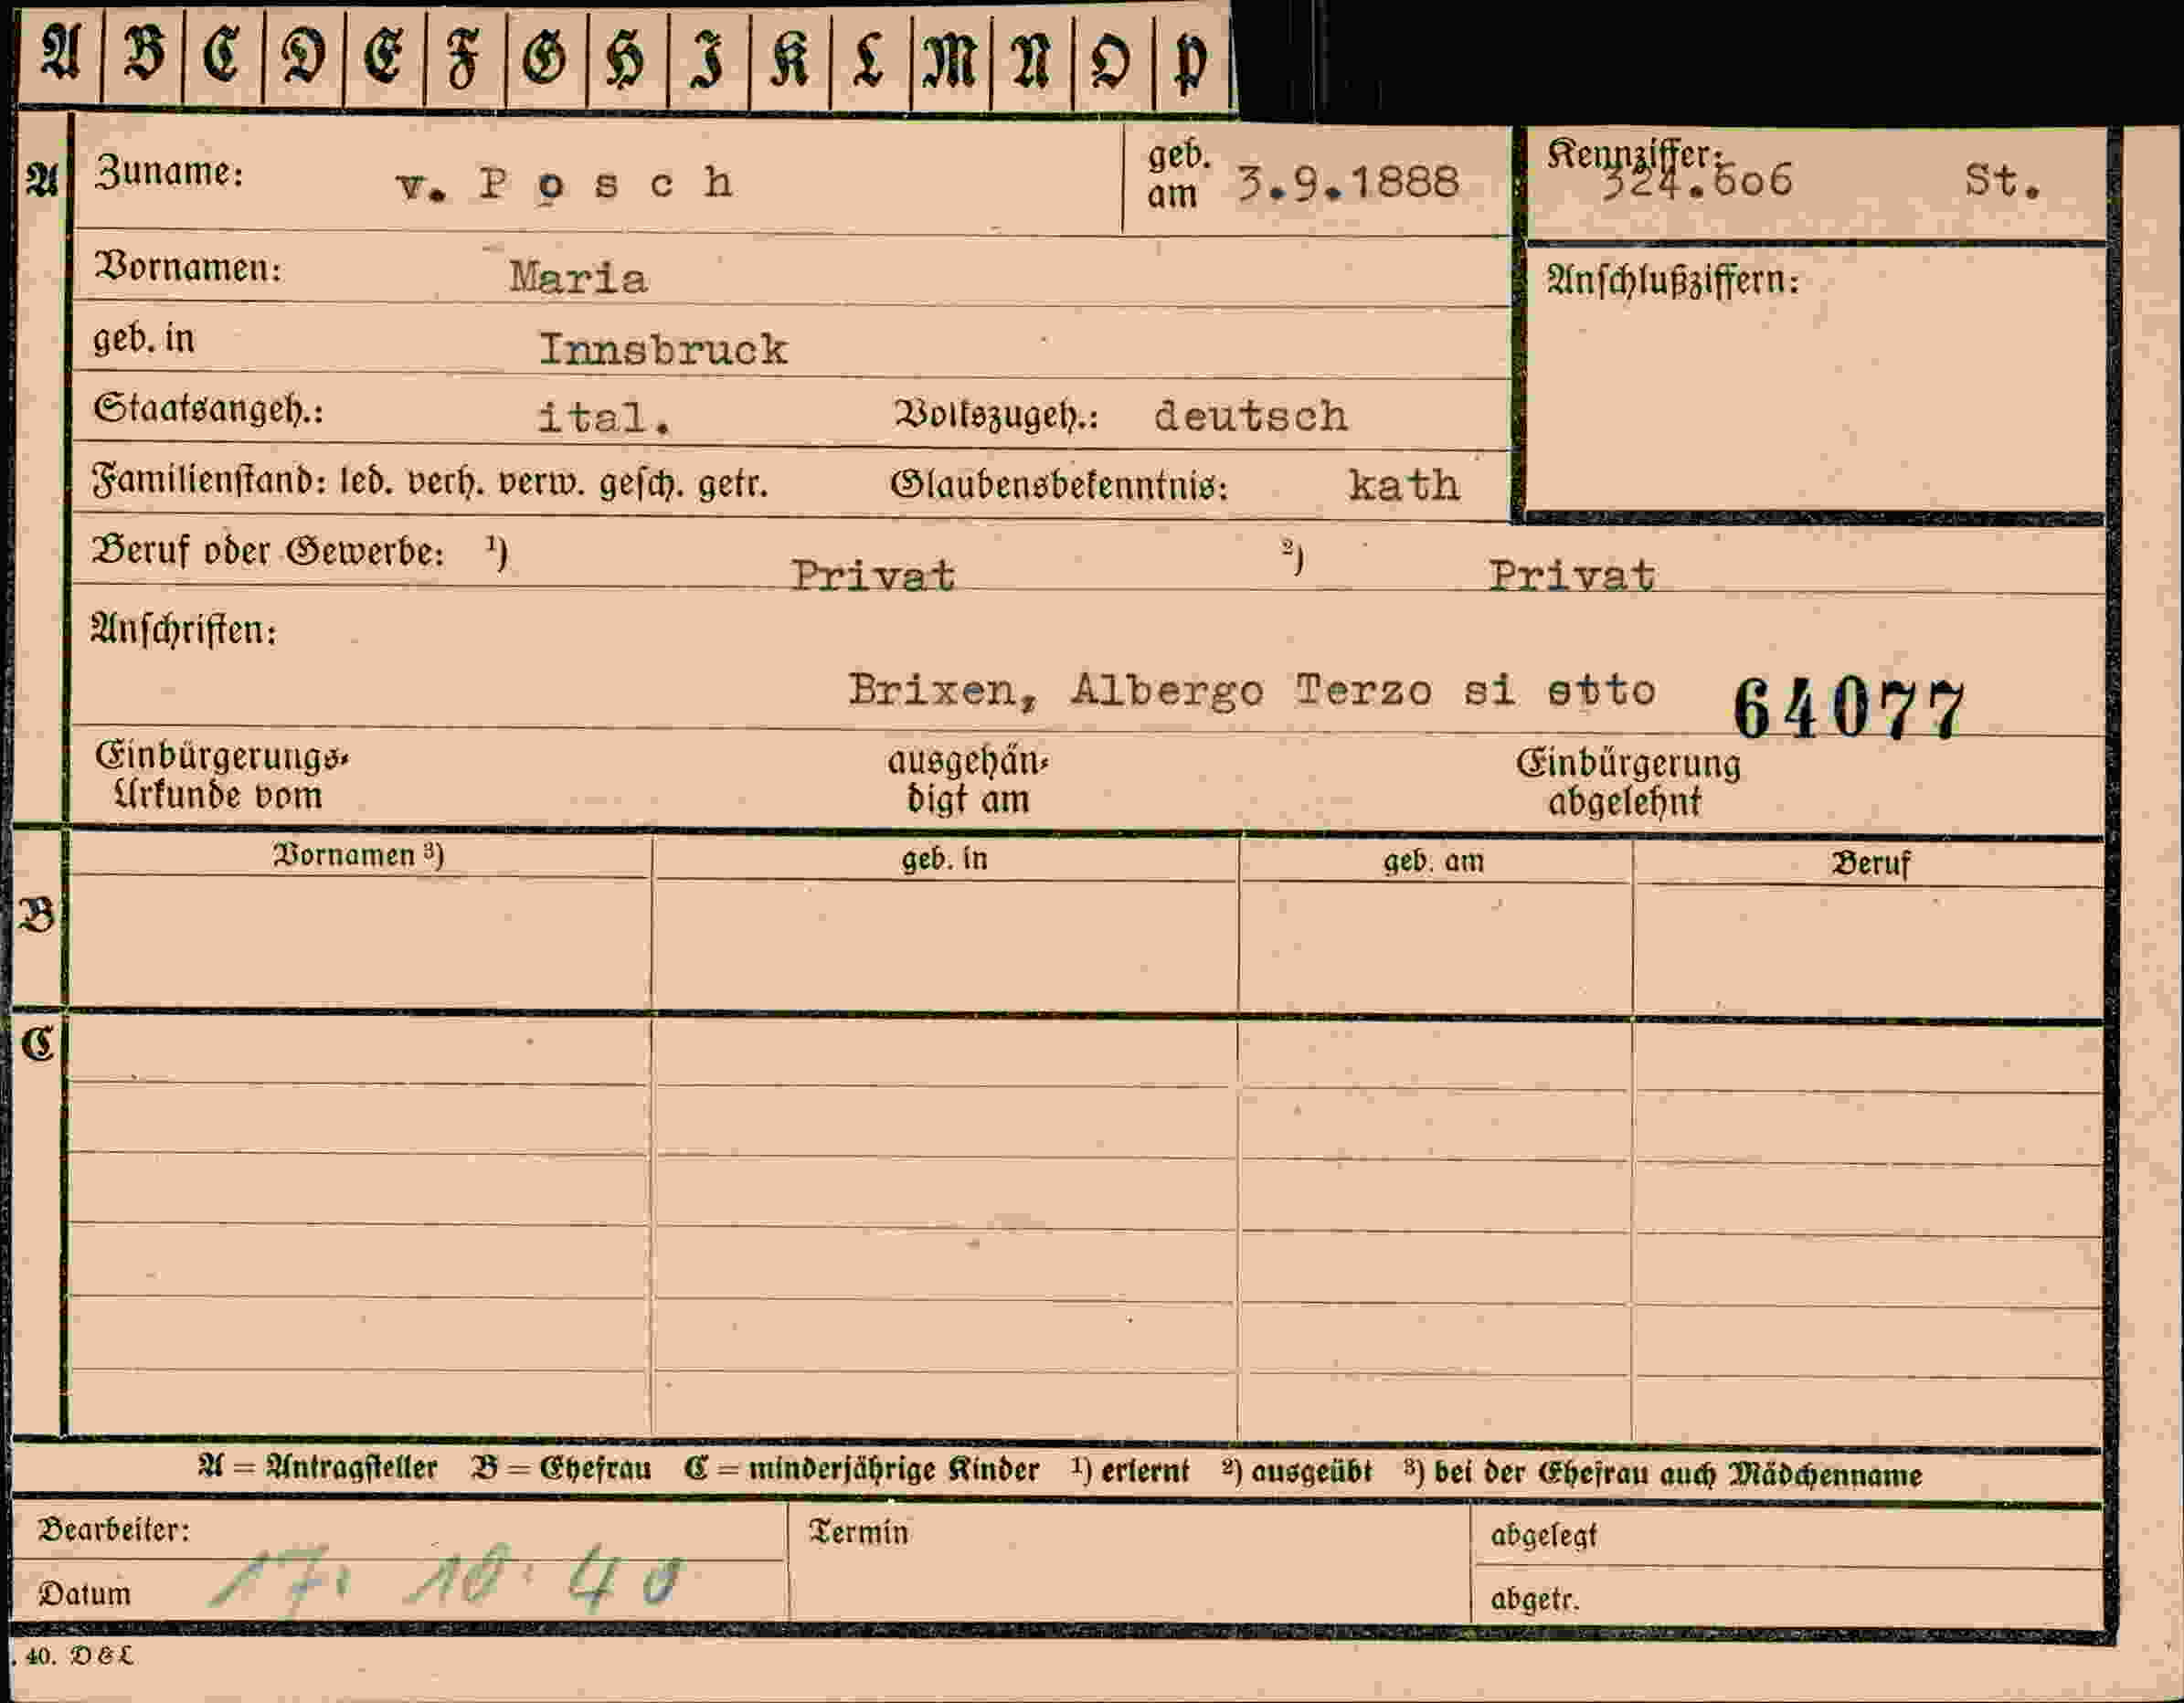 A B C D E F G H I K L M N O P
A Zuname: v. P o s c h geb. am 3.9.1888 Kennziffer: 324.6o6 St.
Vornamen: Maria Anschlußziffern:
geb. in Innsbruck
Staatsangeh.: ital. Volkszugeh.: deutsch
Familienstand: led. verh. verw. gesch. getr. Glaubensbekenntnis: kath
Beruf oder Gewerbe: 1) Privat 2) Privat
Anschriften:
Brixen, Albergo Terzo si otto 64077
Einbürgerungs- ausgehän- Einbürgerung
Urkunde vom digt am abgelehnt
Vornamen 3) geb. in geb. am Beruf
B
C
A = Antragsteller B = Ehefrau C = minderjährige Kinder 1) erlernt 2) ausgeübt 3) bei der Ehefrau auch Mädchenname
Bearbeiter: Termin abgelegt
Datum 17. 10. 40 abgetr.
. 40. D & L